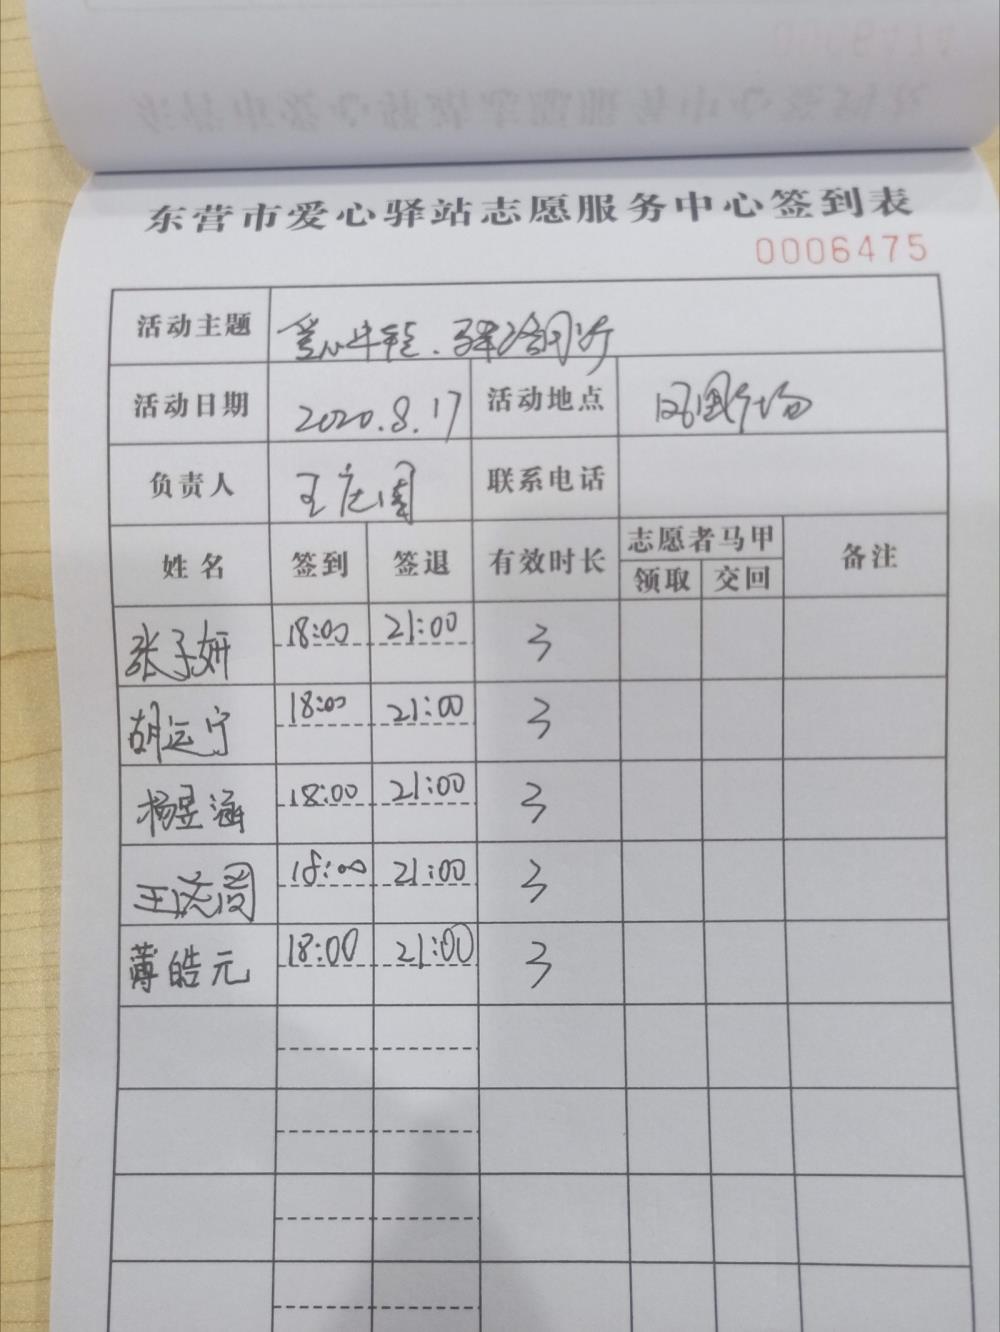 东营市爱心驿站志愿服务中心签到表
0006475
活动主题 爱心牛鞋、驿路同行
活动日期 2020.8.17 活动地点 凤凰广场
负责人 联系电话
姓名 签到 签退 有效时长 志愿者马甲 备注
领取 交回
张子妍 18:00 21:00 3
胡运宁 18:00 21:00 3
杨昱涵 18:00 21:00 3
18:00 21:00 3
薄皓元 18:00 21:00 3